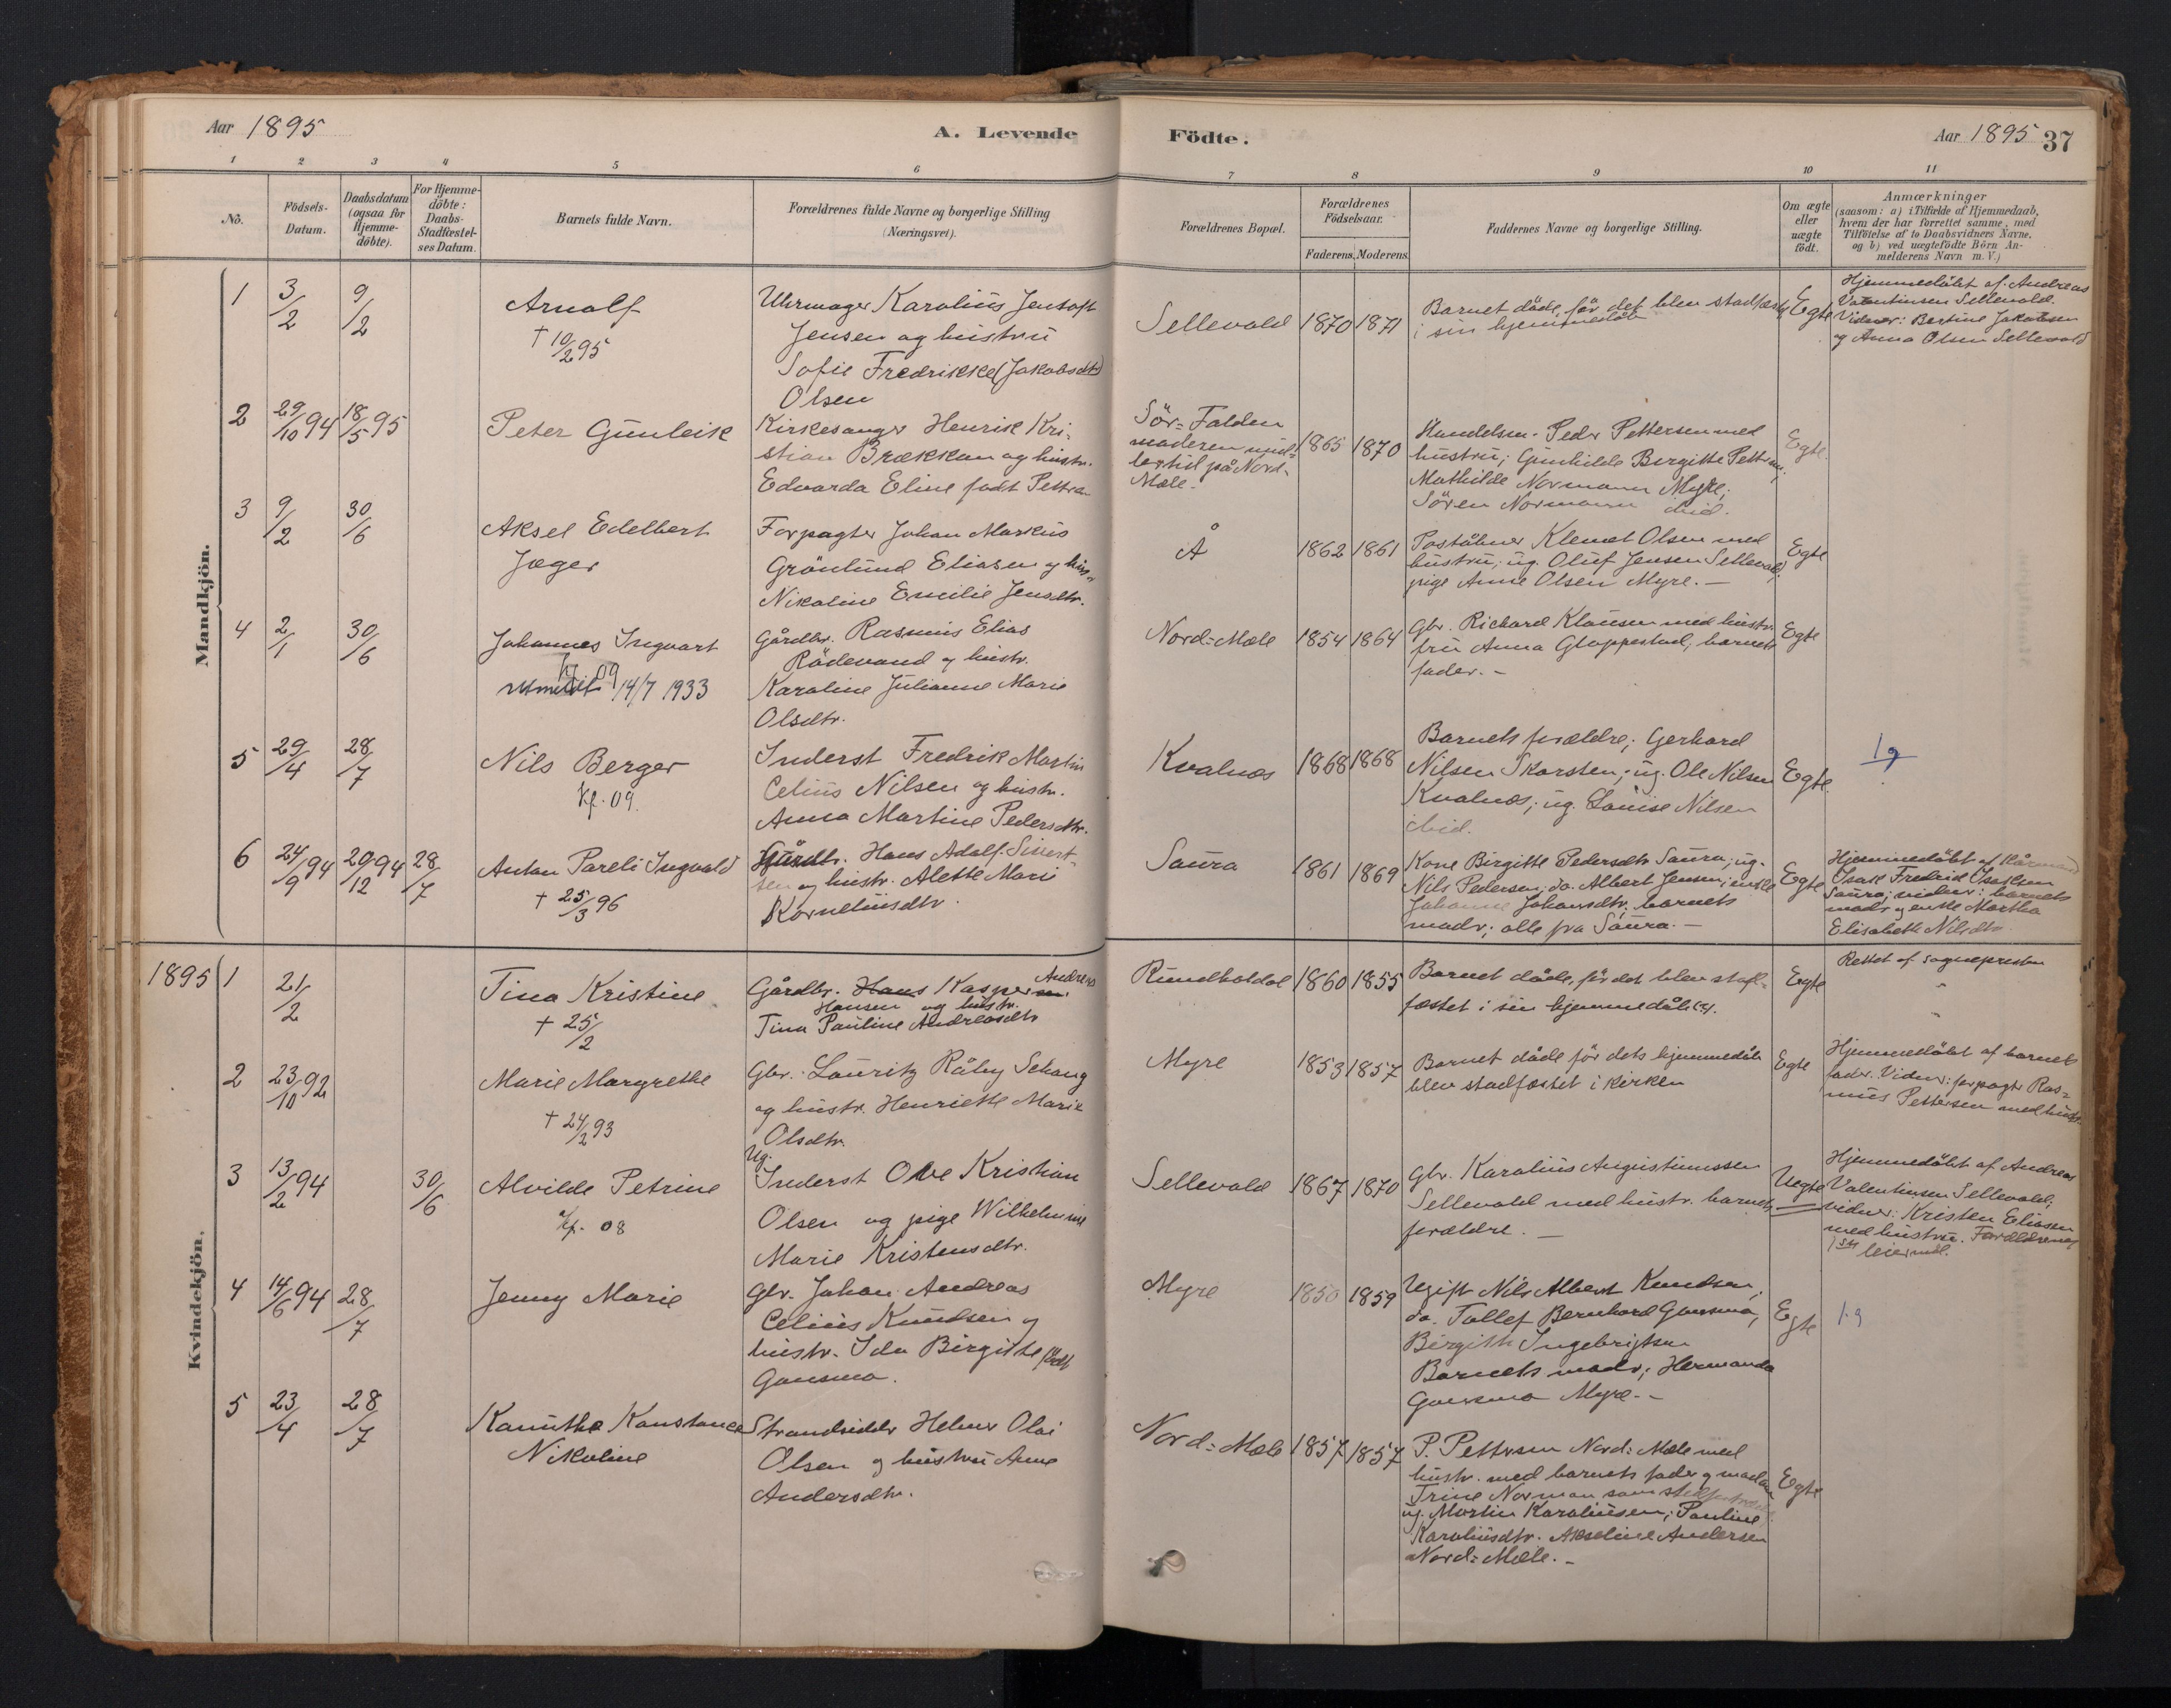 Aar 1895
A. Levende
Födte.
Aar 1895 37
1 2 3 4 5 6 7 8 9 10 11
No.
Födsels-
Datum.
Daabsdatum
(ogsaa for
Hjemme-
döbte).
For Hjemme-
döbte:
Daabs-
Stadfæstel-
ses Datum.
Barnets fulde Navn.
Forældrenes fulde Navne og borgerlige Stilling
(Næringsvei).
Forældrenes Bopæl.
Forældrenes
Födselsaar.
Faderens. Moderens.
Faddernes Navne og borgerlige Stilling.
Om ægte
eller
uægte
födt.
Anmærkninger
(saasom: a) i Tilfælde af Hjemmedaab,
hvem der har forrettet samme, med
Tilföielse af to Daabsvidners Navne,
og b) ved uægtefödte Börn An-
melderens Navn m. V.)
Mandkjön.
1 3/2 9/2
Arnolf
† 10/2 95
Uhrmager Karolius Jentoft
Jensen og hustru
Sofie Fredrikke (Jakobsdtr)
Olsen
Sellevold 1870 1871
Barnet döde, för det blev stadfæstet
i sin hjemmedåb
Egte
Hjemmedöbt af Andreas
Valentinsen Sellevold.
Vidner: Bertine Jakobsen
og Anna Olsen Sellevold
2 29/10 94 18/5 95
Peter Gunleik
Kirkesanger Henrik Kri-
stian Brækkan og hustr.
Edvarda Eline født Petters
Sör-Falden
moderen mid-
lertid på Nord-
Mæle.
1865 1870
Handelsm. Peder Pettersen med
hustru; Gunhilde Birgitte Pettersen;
Mathilde Normann Myre;
Sören Normann ibid.
Egte.
3 9/2 30/6
Aksel Edelbert
Jæger
Forpagter Johan Markus
Grönlund Eliasen og hustr.
Nikoline Emilie Jensdtr.
Å 1862 1861
Poståbner Klemet Olsen med
hustru; ug. Oluf Jensen Sellevold;
pige Anne Olsen Myre. -
Egte
4 2/1 30/6
Johannes Ingvart
kf. 09
Utmeldt 14/7 1933
Gårdbr. Rasmus Elias
Rödevand og hustr.
Karoline Julianne Marie
Olsdtr.
Nord-Mæle 1854 1864
Gbr. Richard Klausen med hustr.
fru Anna Gloppestad; barnets
fader. -
Egte
5 29/4 28/7
Nils Berger
Kf. 09.
Inderst Fredrik Martin
Celius Nilsen og hustr.
Anna Martine Pedersdtr.
Kvalnæs 1868 1868
Barnets forældre; Gerhard
Nilsen Skarsten; ug. Ole Nilsen
Kvalnæs; ug. Louise Nilsen
ibid.
Egte.
6 24/9 94 29/12 94 28/7
Anton Pareli Ingvald
† 25/3 96
Gårdbr. Hans Adolf Sivert-
sen og hustr. Alette Marie
Korneliusdtr.
Saura 1861 1869
Kone Birgitte Pedersdtr Saura; ug.
Nils Pedersen; do. Albert Jensen; enke
Johanne Johansdtr; barnets
moder; alle fra Saura. -
Egte
Hjemmedöbt af
Isak Fredrid Isaksen
Saura; vidner: barnets
moder og enke Martha
Elisabeth Nilsdtr.
Kvindekjön.
1895 1 21/2
Tina Kristine
† 25/2
Gårdbr. Hans Kasper Andreas
Hansen og hustr.
Tina Pauline Andreasdtr
Rundholdal 1860 1855
Barnet döde, för det blev stad-
fæstet i sin hjemmedåb (?).
Egte
Rettet af sognepresten
2 23/10 92
Marie Margrethe
† 24/2 93
Gbr. Lauritz Råby Schang
og hustr. Henriette Marie
Olsdtr.
Myre 1853 1857
Barnet döde för dets hjemmedåb
blev stadfæstet i kirken
Egte
Hjemmedöbt af barnets
fader. Vidner: forpagter Ras-
mus Pettersen med hustr.
3 13/2 94 30/6
Alvilde Petrine
Kf. 08
Ug.
Inderst Ole Kristian
Olsen og pige Wilhelmine
Marie Kristensdtr.
Sellevold 1867 1870
Gbr. Karolius Augustinussen
Sellevold med hustr. barnets
forældre. -
Uegte
Hjemmedöbt af Andreas
Valentinsen Sellevold;
vidner: Kristen Eliasen
med hustru. Forældrenes
1ste leiermål.
4 14/6 94 28/7
Jenny Marie
Gbr. Johan Andreas
Celius Knudsen og
hustr. Ida Birgitte født
Gansmo.
Myre 1850 1859
Ugift Nils Albert Knudsen;
do. Tollef Bernhard Gansmo,
Birgith Ingebrigtsen
Barnets moder; Hermanda
Gansmo Myre. -
Egte
5 23/4 28/7
Kanutha Konstance
Nikoline
Strandsidder Helmer Olai
Olsen og hustru Anne
Andersdtr.
Nord-Mæle 1857 1857
P. Pettersen Nord-Mæle med
hustr. med barnets fader og madam
Trine Norman som
ug. Martin Karoliusen; Pauline
Karoliusdtr. Akseline Andersen
Nord-Mæle. -
Egte